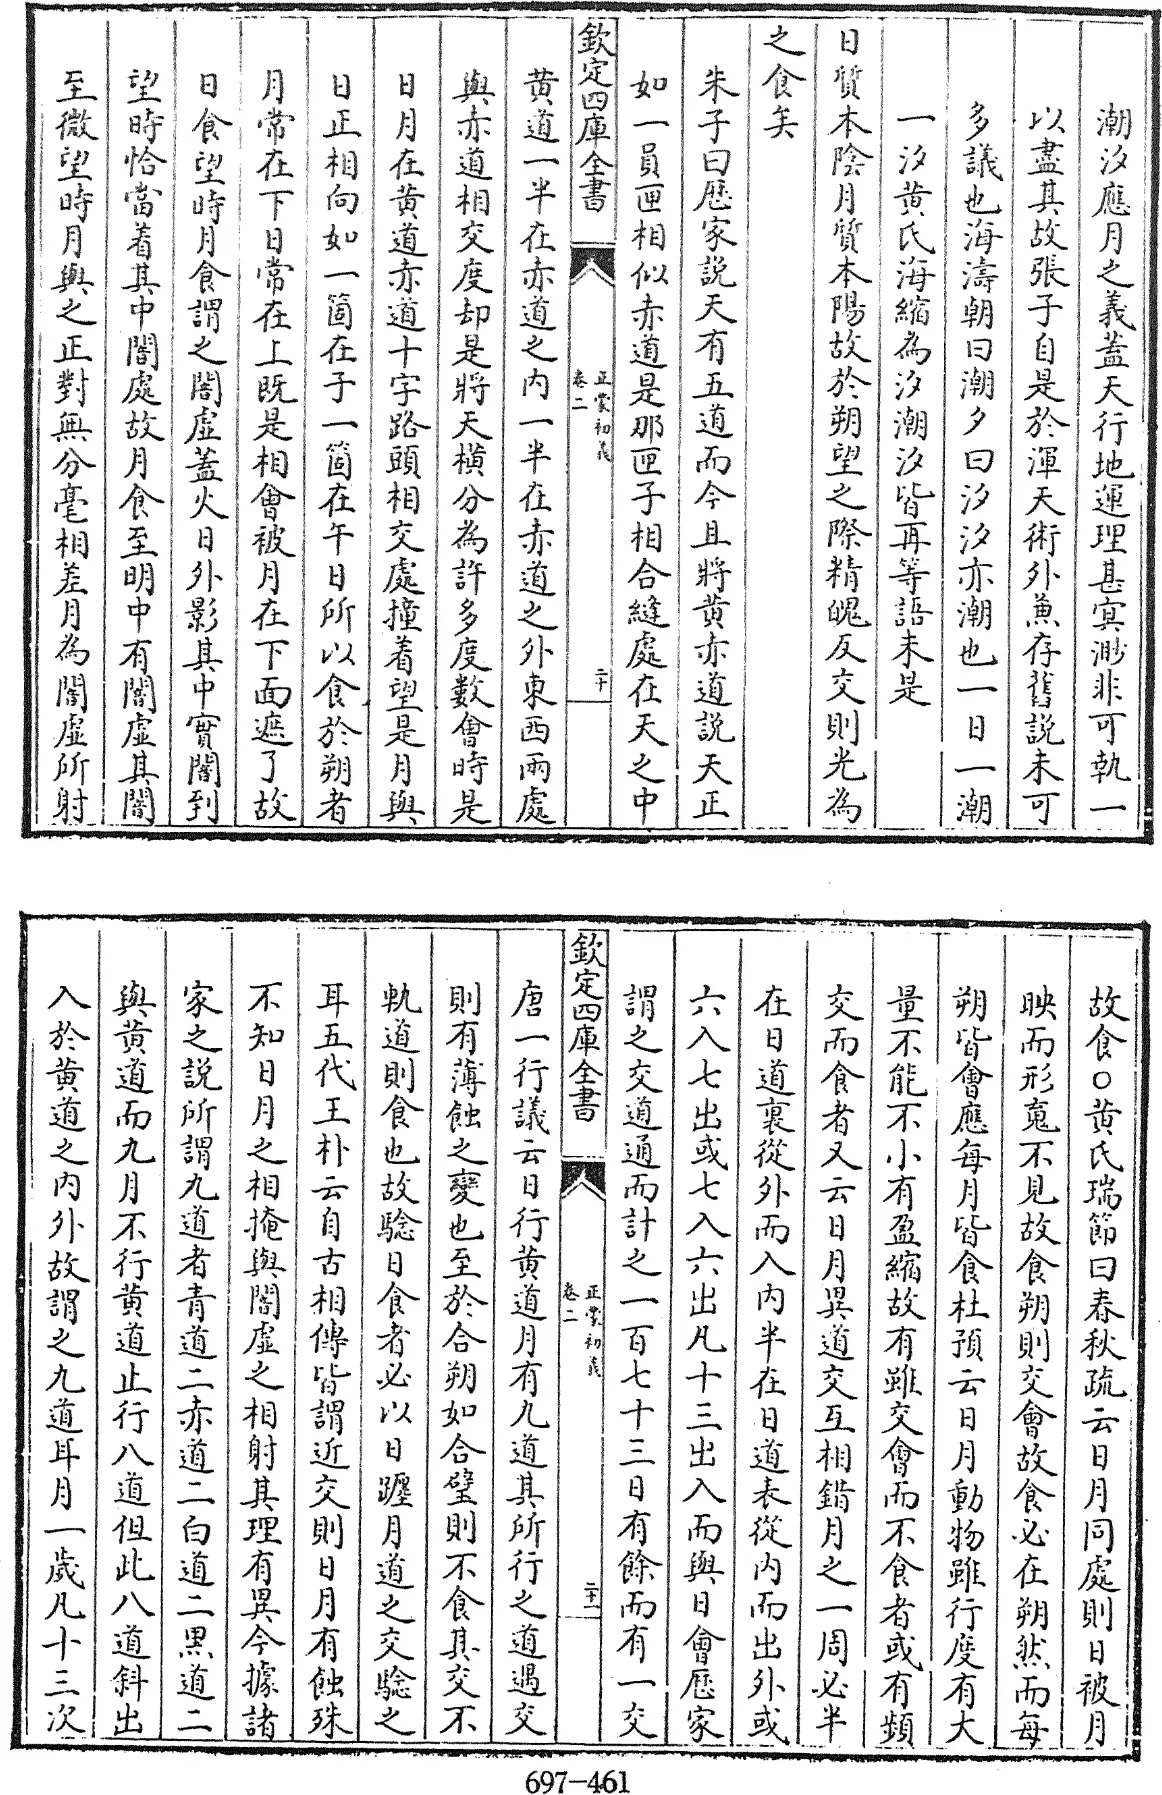 潮汐應月之義蓋天行地運理甚㝠渺非可執一
以盡其故張子自是於渾天術外兼存舊説未可
多議也海濤朝曰潮夕曰汐汐亦潮也一日一潮
一汐黄氏海縮為汐潮汐皆再等語未是
日質本陰月質本陽故於朔望之際精魄反交則光為
之食矣
朱子曰厯家説天有五道而今且將黄赤道説天正
如一員匣相似赤道是那匣子相合縫處在天之中
欽定四庫全書
正蒙初義
卷二
二十
黄道一半在赤道之内一半在赤道之外東西兩處
與赤道相交度却是將天横分為許多度數會時是
日月在黄道赤道十字路頭相交處撞着望是月與
日正相向如一箇在子一箇在午日所以食於朔者
月常在下日常在上既是相會被月在下面遮了故
日食望時月食謂之闇虚蓋火日外影其中實闇到
望時恰當着其中闇處故月食至明中有闇虚其闇
至微望時月與之正對無分毫相差月為闇虚所射
故食○黄氏瑞節曰春秋疏云日月同處則日被月
映而形䰟不見故食朔則交會故食必在朔然而每
朔皆會應每月皆食杜預云日月動物雖行度有大
量不能不小有盈縮故有雖交會而不食者或有頻
交而食者又云日月異道交互相錯月之一周必半
在日道裏從外而入内半在日道表從内而出外或
六入七出或七入六出凡十三出入而與日會厯家
謂之交道通而計之一百七十三日有餘而有一交
欽定四庫全書
正蒙初義
卷二
二十一
唐一行議云日行黄道月有九道其所行之道遇交
則有薄蝕之變也至於合朔如合璧則不食其交不
軌道則食也故騐日食者必以日躔月道之交騐之
耳五代王朴云自古相傳皆謂近交則日月有蝕殊
不知日月之相掩與闇虚之相射其理有異今據諸
家之説所謂九道者青道二赤道二白道二黒道二
與黄道而九月不行黄道止行八道但此八道斜出
入於黄道之内外故謂之九道耳月一歲凡十三次
697-461